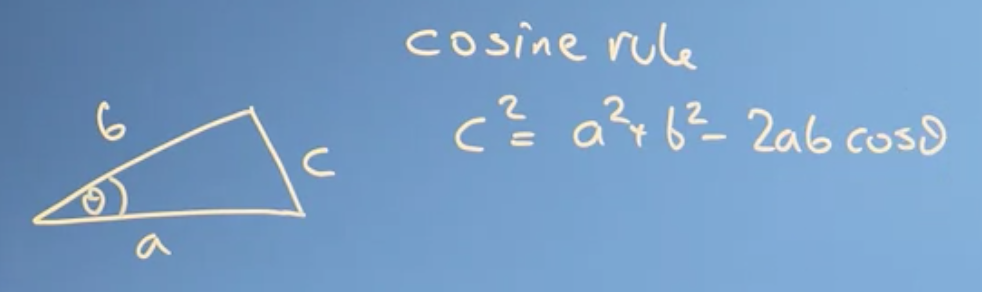 cosine rule
c² = a² + b² - 2ab cosθ
b
c
θ
a